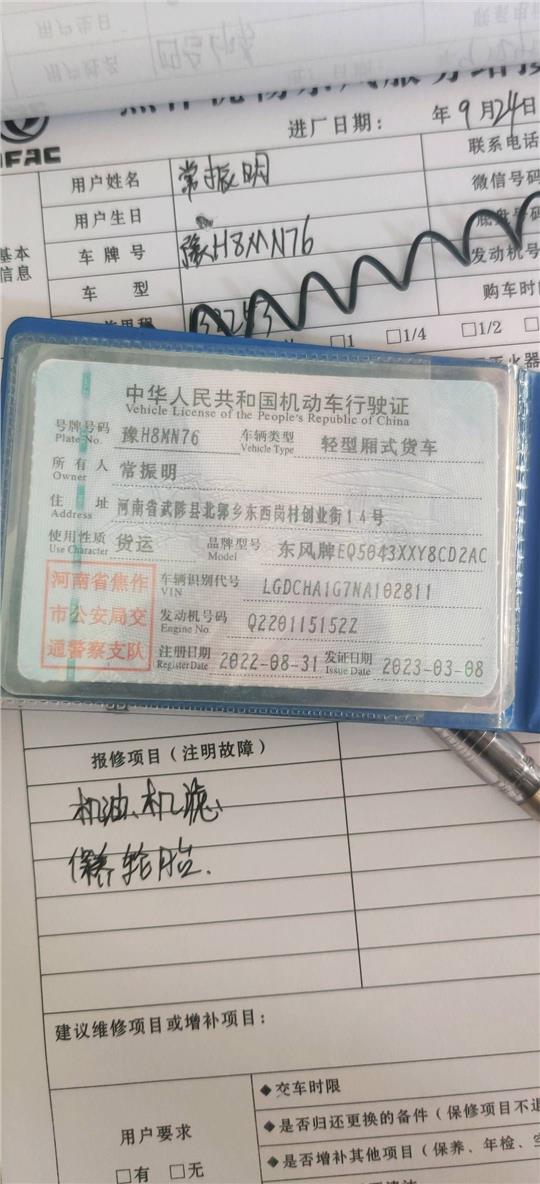 进厂日期： 年9月24日
用户姓名 常振明 联系电话
用户生日 微信号码
车牌号 豫H8MN76 底盘号
基本信息
发动机号
车型 购车时间
□1 □1/4 □1/2
中华人民共和国机动车行驶证
Vehicle License of the People's Republic of China
号牌号码 豫H8MN76 车辆类型 轻型厢式货车
Plate No. Vehicle Type
所有人 常振明
Owner
住址 河南省武陟县北郭乡东西岗村创业街14号
Address
使用性质 货运 品牌型号 东风牌EQ5043XXY8CD2AC
Use Character Model
河南省焦作
市公安局交
通警察支队
车辆识别代号 LGDCHA1G7NA102811
VIN
发动机号码 Q220115152Z
Engine No.
注册日期 2022-08-31 发证日期 2023-03-08
Register Date Issue Date
报修项目（注明故障）
机油、机滤、
保养轮胎.
建议维修项目或增补项目：
用户要求
□有 □无
◆交车时限
◆是否归还更换的备件（保修项目不退
◆是否增补其他项目（保养、年检、